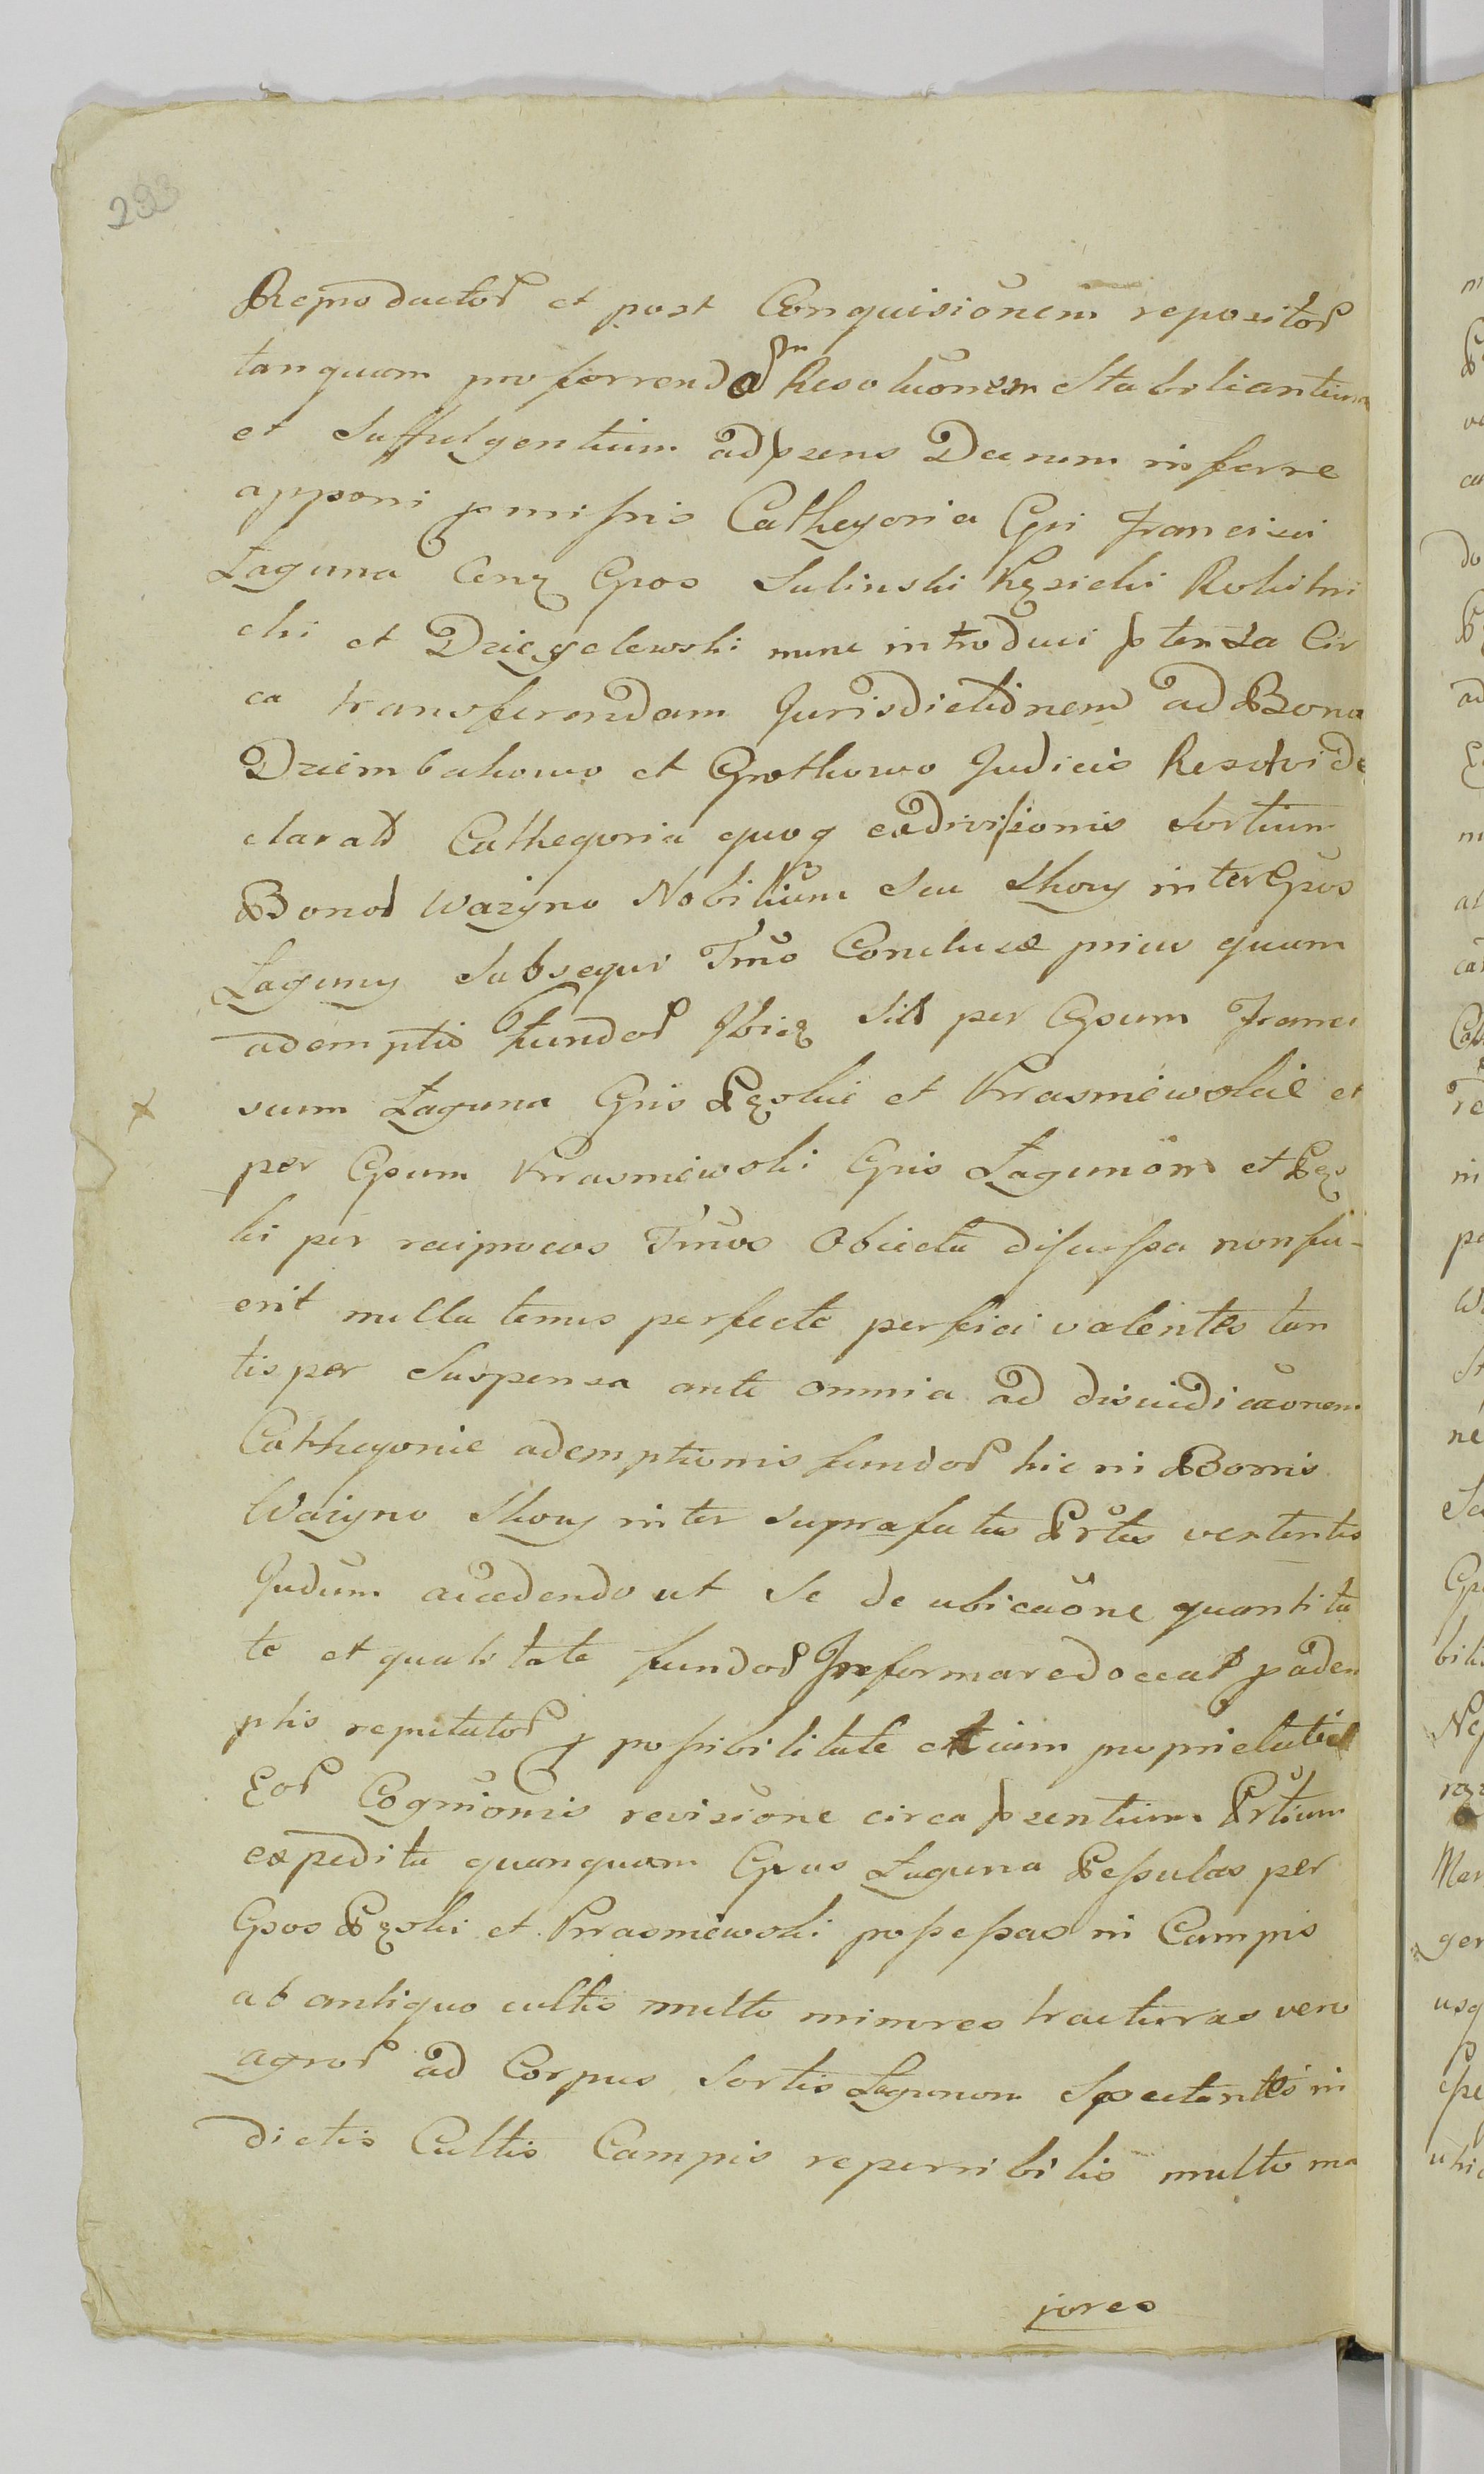 293
Reproductor et post Conquisiōnem repositor
tanquam pro ferrend Resoluōnem Stabiliantium
et Suffulgentium ad pzens Dcenum inferre
apponi pmissis Cathegoria Gsi Francisci
Łaguna Cenz Gsos Sulinski Kęsicki Rokitni
cki et Dzięgelewski nunc introduci ptensa Cir
ca transferendam Jurisdictionem ad Bona
Dziembakowo et Grothowo Judicio Resolvi de
clarat Cathegoria quoq exdivisionis Sortium
Bonor Wazyno Nobilium Seu Skory inter Gsos
Łaguny Subsequi Tmo Conclusae prius quam
ademptio fundor Ibiq Sit per Gsum Franci
scum Łaguna Gsis Pęskie et Krasniewskie et
per Gsum Krasniewski Gsis Łagunom et Pęs
ki per reciprocos Tmos Obiecta discussa non fu-
erit nulla tenus perfecte perfici valentes tan
tisper Suspensa ante omnia ad disiudicaonem
Cathegorie ademptionis fundor hic in Bonis
Wazyno Skory inter suprafatas Prtes vertentis
Judum accedendo ut Se de ubicaōne quantita
te et qualitate fundor Informare doceat p adem
ptis reputator p possibilitate etium proprietatis
Eor Cogniōnis revisione circa pzentium Prtium
expedita quanquam Gsus Łaguna Pessulas per
Gsos Pęski et Krasniewski possessas in Campis
ab antiquo cultis multo minores tracturas vero
agror ad Corpus Sortis Łagunom Spectantes in
dictis Cultis Campis reperribilis multo ma
jores